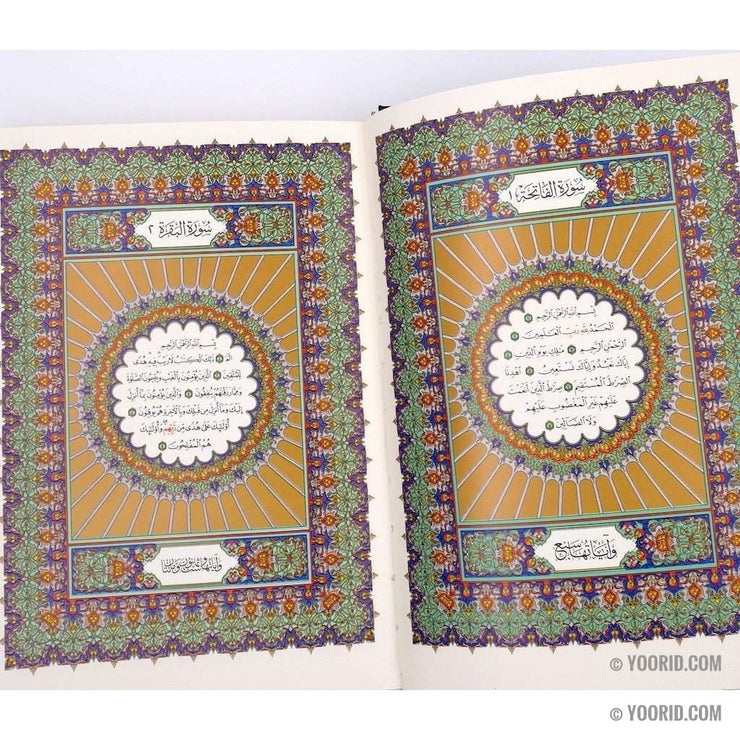 سورة الفاتحة ١
بسم الله الرحمن الرحيم ١
الحمد لله رب العلمين ٢
الرحمن الرحيم ٣ ملك يوم الدين ٤
إياك نعبد وإياك نستعين ٥ اهدنا
الصرط المستقيم ٦ صرط الذين أنعمت
عليهم غير المغضوب عليهم
ولا الضالين ٧
وآياتها سبع
سورة البقرة ٢
بسم الله الرحمن الرحيم
الم ١ ذلك الكتب لا ريب فيه هدى
للمتقين ٢ الذين يؤمنون بالغيب ويقيمون الصلوة
ومما رزقنهم ينفقون ٣ والذين يؤمنون بما أنزل
إليك وما أنزل من قبلك وبالآخرة هم يوقنون ٤
أولئك على هدى من ربهم وأولئك
هم المفلحون ٥
© YOORID.COM
© YOORID.COM